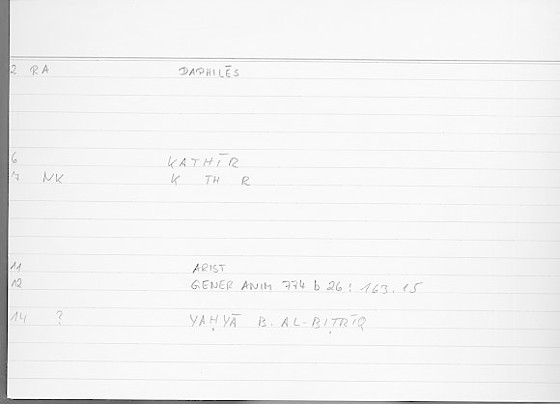 2 RA DAPHILĒS
6 KATHĪR
7 NK K TH R
11 ARIST
12 GENER ANIM 774 b 26 : 163.15
14 ? YAḤYĀ B. AL-BIṬRĪQ